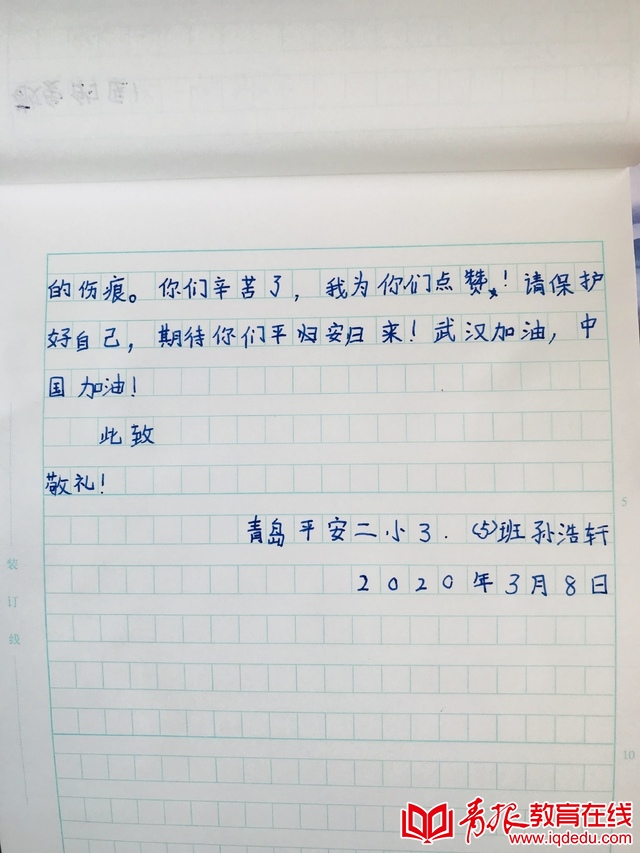 的伤痕。你们辛苦了，我为你们点赞！请保护
好自己，期待你们平归安归来！武汉加油，中
国加油！
此致
敬礼！
青岛平安二小3.(5)班孙浩轩
2020年3月8日
5
装
订
线
10
青报教育在线
www.iqdedu.com